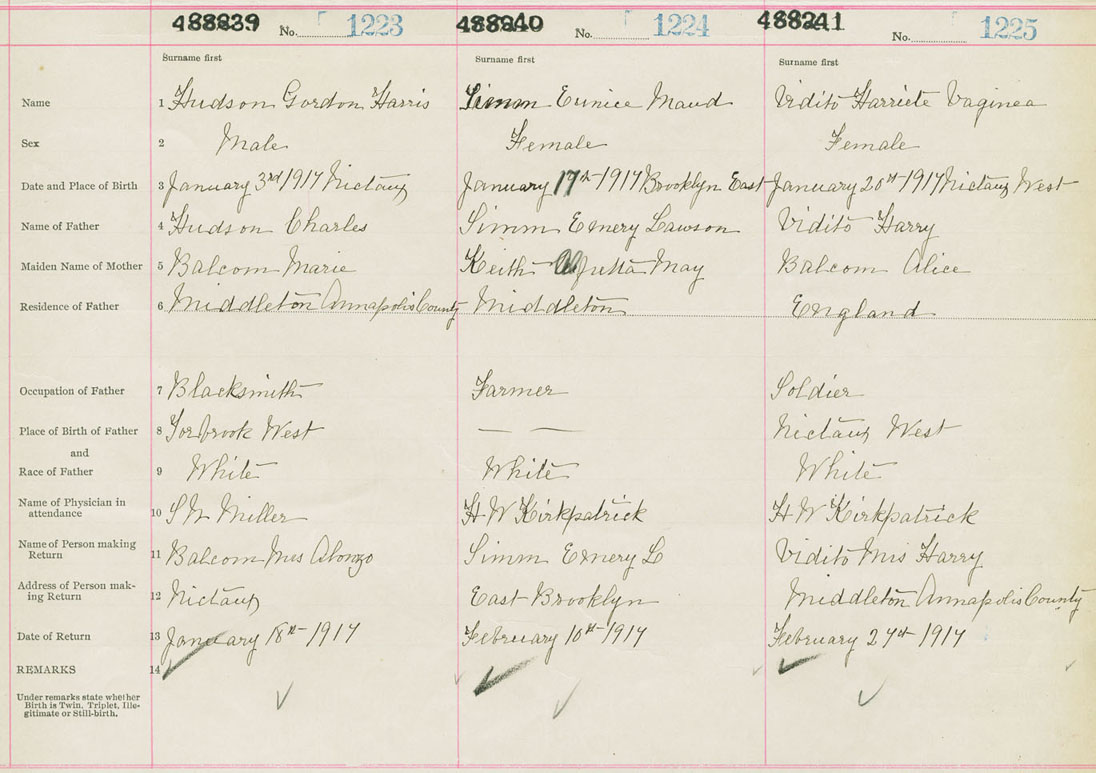 488239 No. 1223 488240 No. 1224 488241 No. 1225
Surname first Surname first Surname first
Name 1 Hudson Gordon Harris Simm Eunice Maud Vidito Harriete Vaginea
Sex 2 Male Female Female
Date and Place of Birth 3 January 3rd 1917 Nictaux January 17th 1917 Brooklyn East January 20th 1917 Nictaux West
Name of Father 4 Hudson Charles Simm Emery Lawson Vidito Harry
Maiden Name of Mother 5 Balcom Marie Keith Jutta May Balcom Alice
Residence of Father 6 Middleton Annapolis County Middleton England
Occupation of Father 7 Blacksmith Farmer Soldier
Place of Birth of Father 8 Torbrook West — — Nictaux West
and
Race of Father 9 White White White
Name of Physician in
attendance 10 S N Miller H W Kirkpatrick H W Kirkpatrick
Name of Person making
Return 11 Balcom Mrs Alonzo Simm Emery L Vidito Mrs Harry
Address of Person mak-
ing Return 12 Nictaux East Brooklyn Middleton Annapolis County
Date of Return 13 January 18th 1917 February 10th 1917 February 27th 1917
REMARKS 14
Under remarks state whether
Birth is Twin, Triplet, Ille-
gitimate or Still-birth.